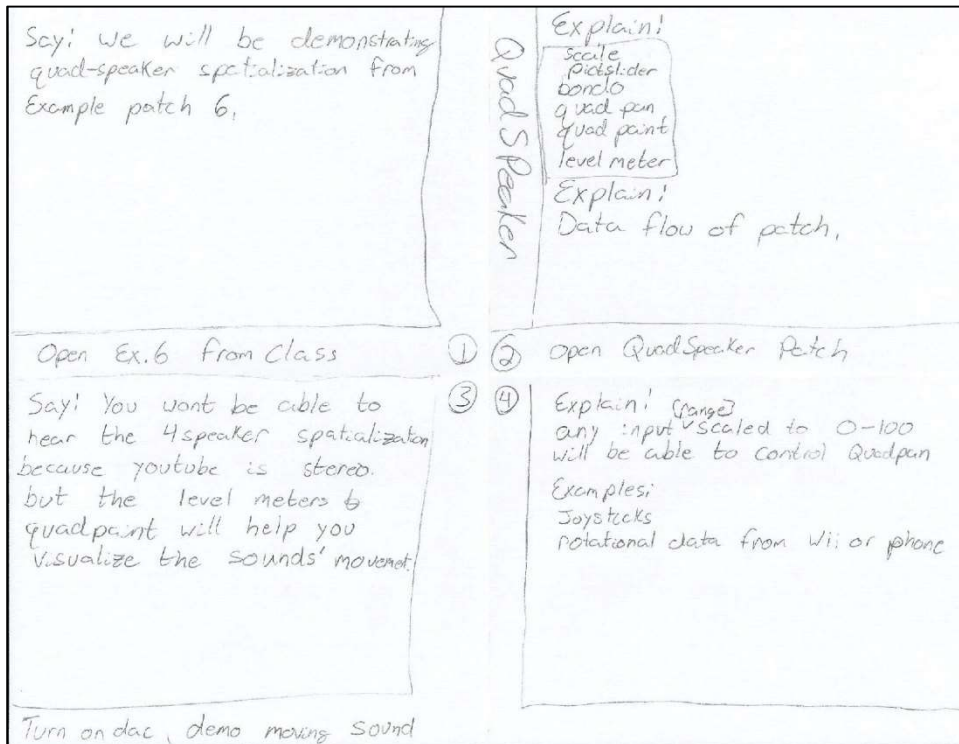 Say: We will be demonstrating
quad-speaker spatialization from
Example patch 6.
Open Ex.6 from Class
①
QuadSpeaker
Explain:
scale
pictslider
bondo
quad pan
quad paint
level meter
Explain:
Data flow of patch.
②
Open QuadSpeaker Patch
③
Say: You wont be able to
hear the 4speaker spatialization
because youtube is stereo.
but the level meters &
quadpaint will help you
visualize the sounds' movemet.
Turn on dac, demo moving sound
④
Explain: (range)
any input scaled to 0-100
will be able to control Quadpan
Examples:
Joysticks
rotational data from Wii or phone